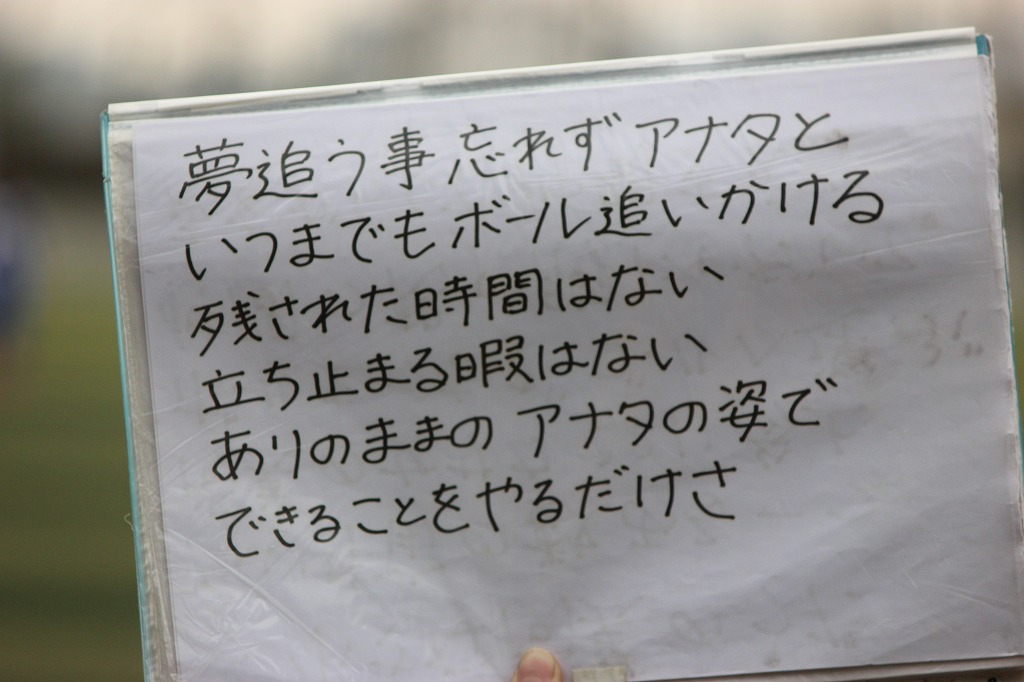 夢追う事忘れずアナタと
いつまでもボール追いかける
残された時間はない
立ち止まる暇はない
ありのままのアナタの姿で
できることをやるだけさ